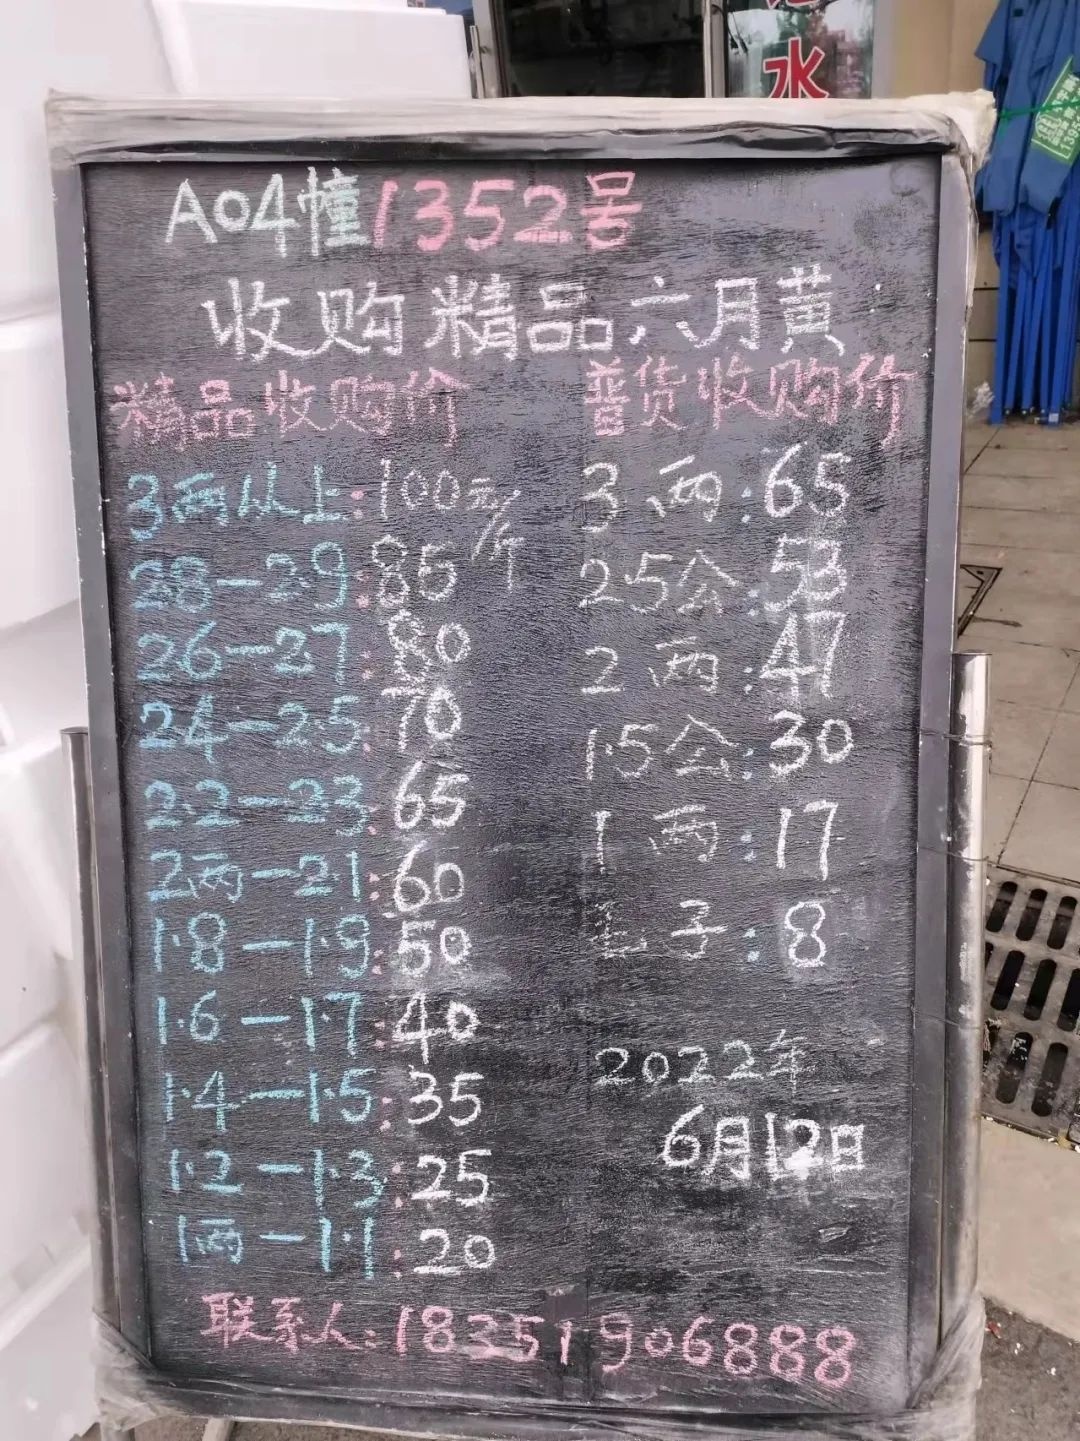 水
A04幢1352号
收购精品六月黄
精品收购价
3两以上:100元/斤
28-29:85
26-27:80
24-2.5:70
2.2-23:65
2两-21:60
1.8-1.9:50
1.6-1.7:40
1.4-1.5:35
1.2-1.3:25
1两-1.1:20
普货收购价
3两:65
2.5公:53
2两:47
1.5公:30
1两:17
毛子:8
2022年
6月12日
联系人:18351906888